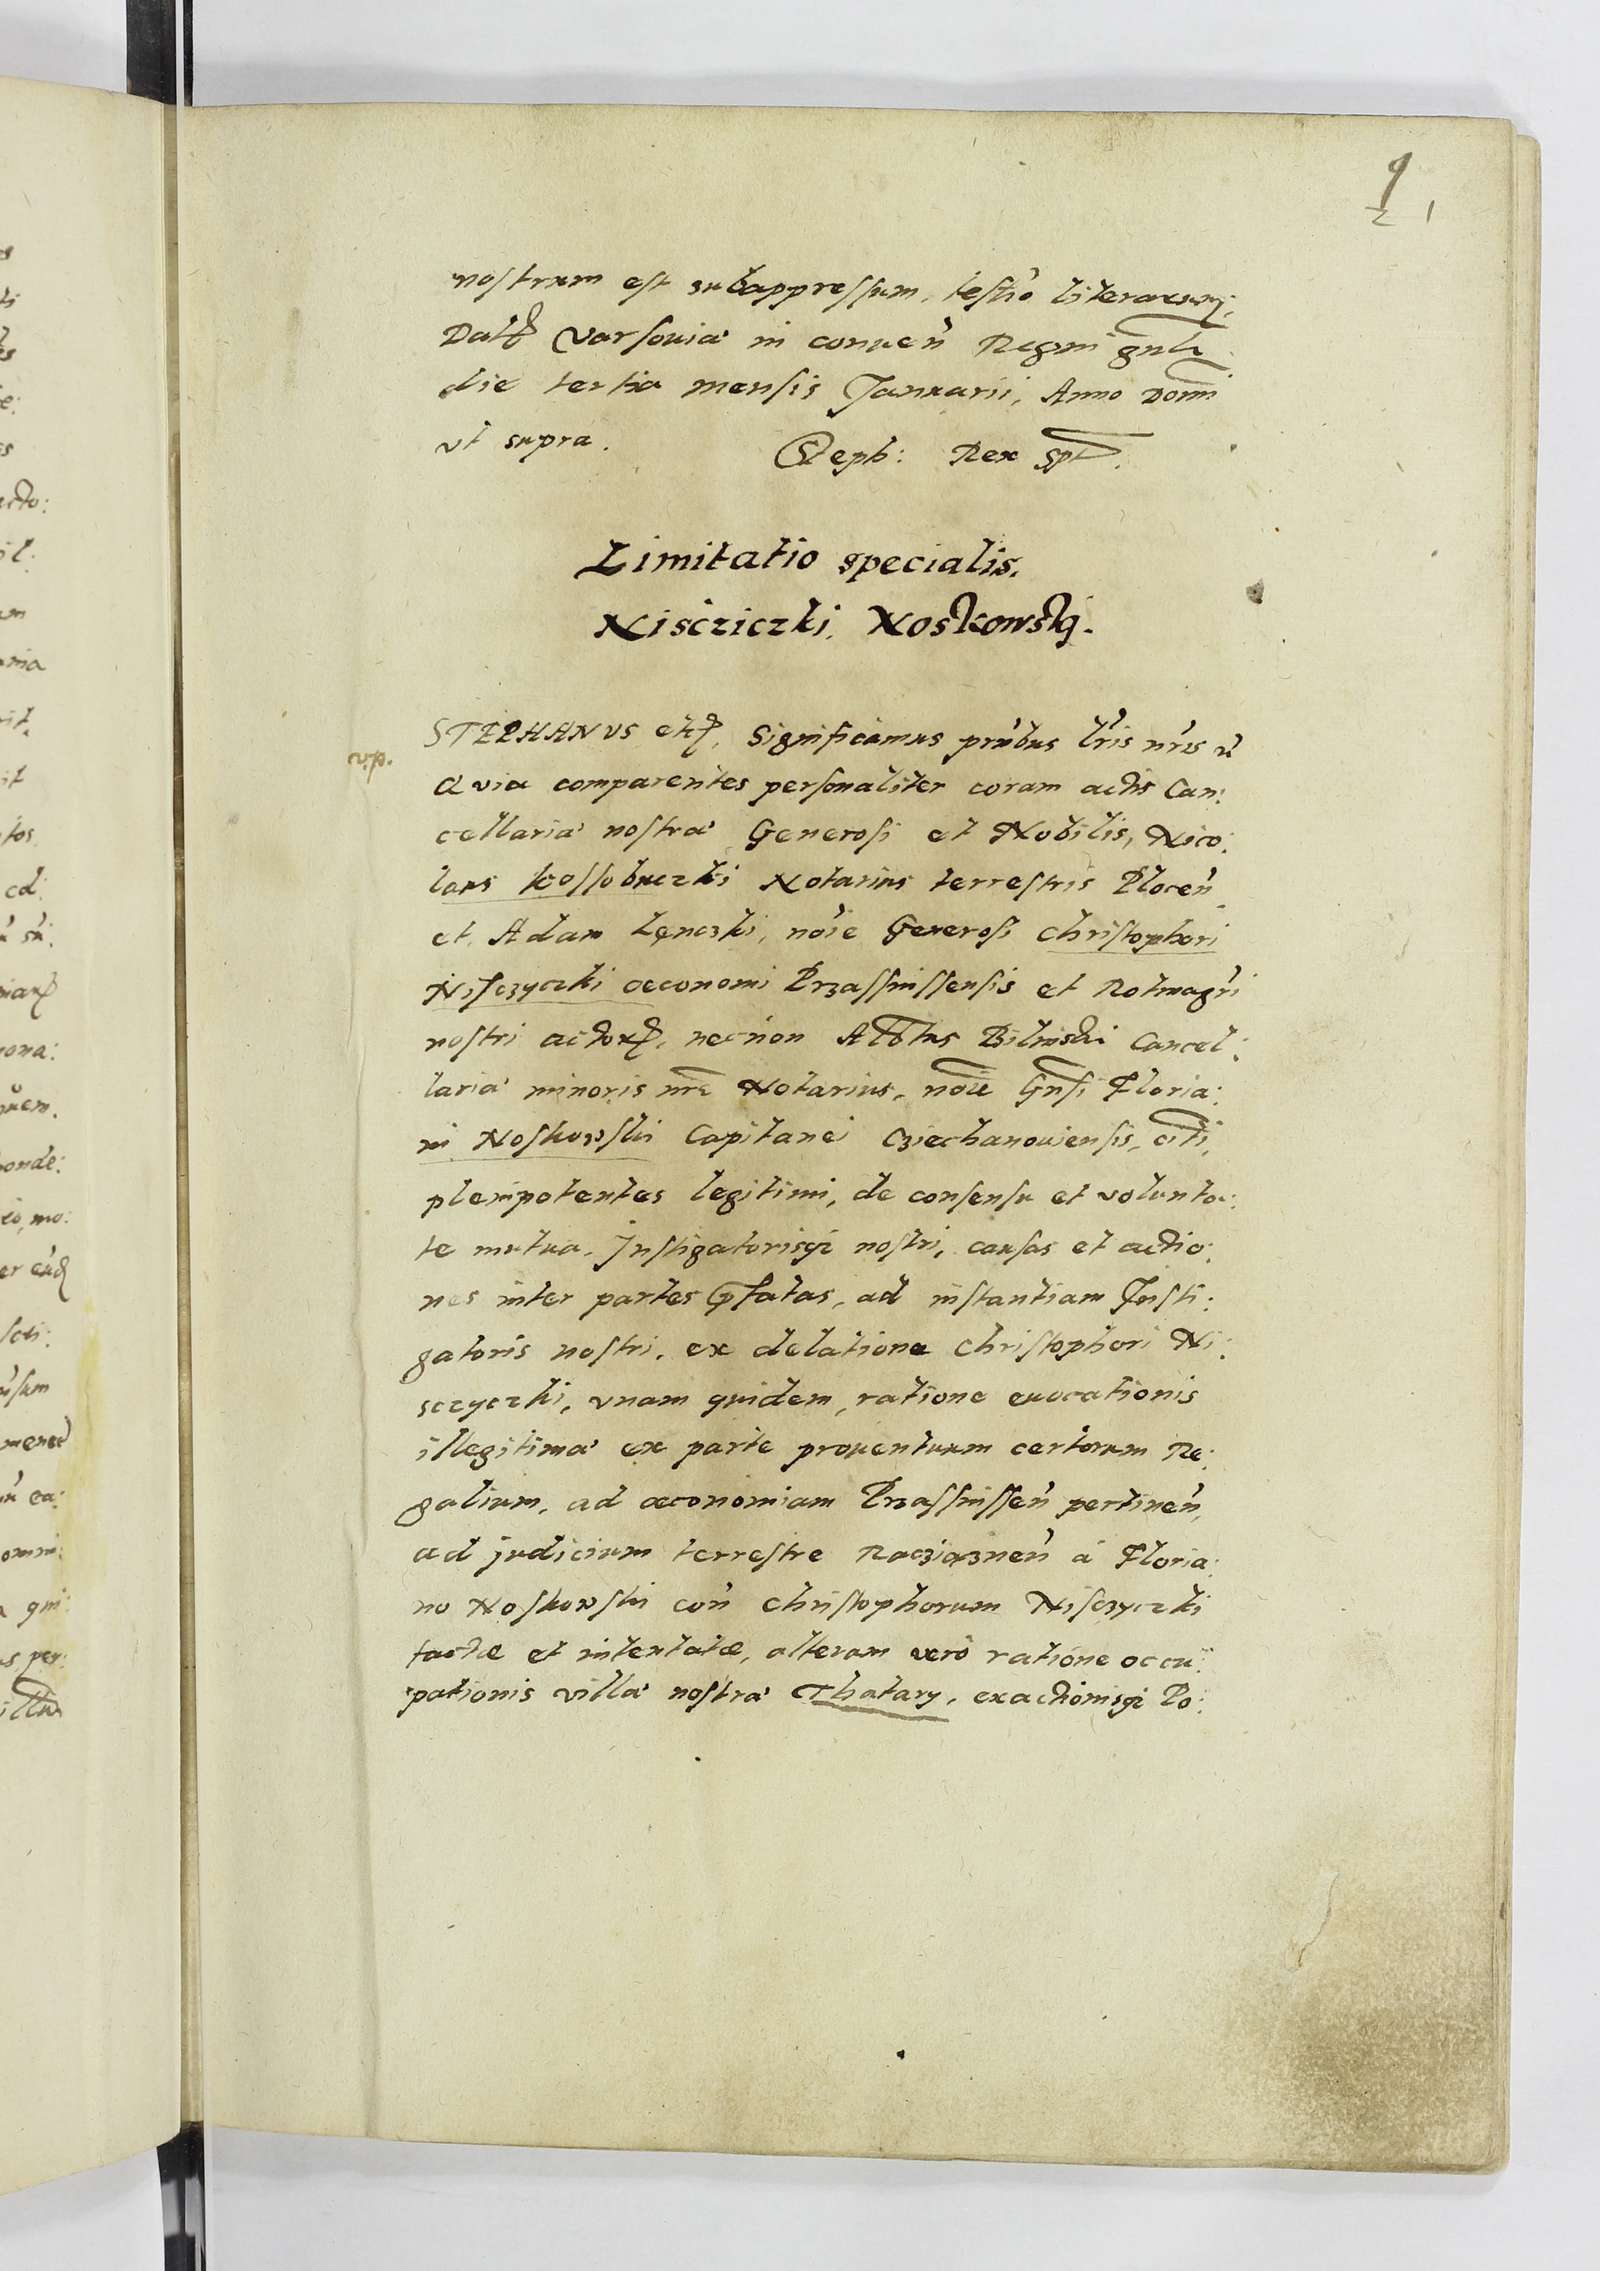 1
nostrum est subappressum, testio literarum.
Dat Varsouia in conuen Regni gnli
die tertia mensis Januarii, Anno Domi
vt supra. Steph: Rex spt.
Limitatio specialis.
Nisciczki, Noskowski.
STEPHANVS etc. Significamus pntbus lris nris
Quia comparentes personaliter coram actis Can:
cellaria nostra Generosi et Nobilis, Nico:
laus Kossobuczki Notarius terrestris Plocen
et Adam Lęnczki, noie Generosi Christophori
Nisczyczki oeconomi Przassnissensis et Rotmagri
nostri actor, necnon Albtus Bilinski Cancel:
laria minoris nre Notarius, noie Gnsi Floria:
ni Noskowski Capitanei Cziechanouiensis, citi,
plenipotentes legitimi, de consensu et volunta:
te mutua, Instigatorisq nostri, causas et actio:
nes inter partes pfatas, ad instantiam Insti:
gatoris nostri, ex delatione Christophori Ni:
sczyczki, vnam quidem, ratione euocationis
illegitima ex parte prouentuum certorum Re:
galium, ad oeconomiam Przassnissen pertinen,
ad judicium terrestre Racząznen a Floria:
no Noskowski con Christophorum Nisczyczki
factae et intentatae, alteram vero ratione occu:
pationis villa nostra Thatary, exactionisq Po: